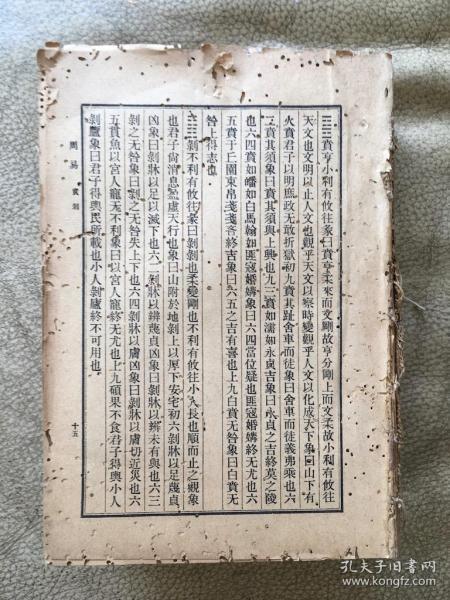 ䷕賁亨小利有攸往彖曰賁亨柔來而文剛故亨分剛上而文柔故小利有攸往
天文也文明以止人文也觀乎天文以察時變觀乎人文以化成天下象曰山下有
火賁君子以明庶政无敢折獄初九賁其趾舍車而徒象曰舍車而徒義弗乘也六
二賁其須象曰賁其須與上興也九三賁如濡如永貞吉象曰永貞之吉終莫之陵
也六四賁如皤如白馬翰如匪寇婚媾象曰六四當位疑也匪寇婚媾終无尤也六
五賁于丘園束帛戔戔吝終吉象曰六五之吉有喜也上九白賁无咎象曰白賁无
咎上得志也
䷖剝不利有攸往彖曰剝剝也柔變剛也不利有攸往小人長也順而止之觀象
也君子尙消息盈虛天行也象曰山附於地剝上以厚下安宅初六剝牀以足蔑貞
凶象曰剝牀以足以滅下也六二剝牀以辨蔑貞凶象曰剝牀以辨未有與也六三
剝之无咎象曰剝之无咎失上下也六四剝牀以膚凶象曰剝牀以膚切近災也六
五貫魚以宮人寵无不利象曰以宮人寵終无尤也上九碩果不食君子得輿小人
剝廬象曰君子得輿民所載也小人剝廬終不可用也
周易 賁 剝
十五
孔夫子旧书网
www.kongfz.com